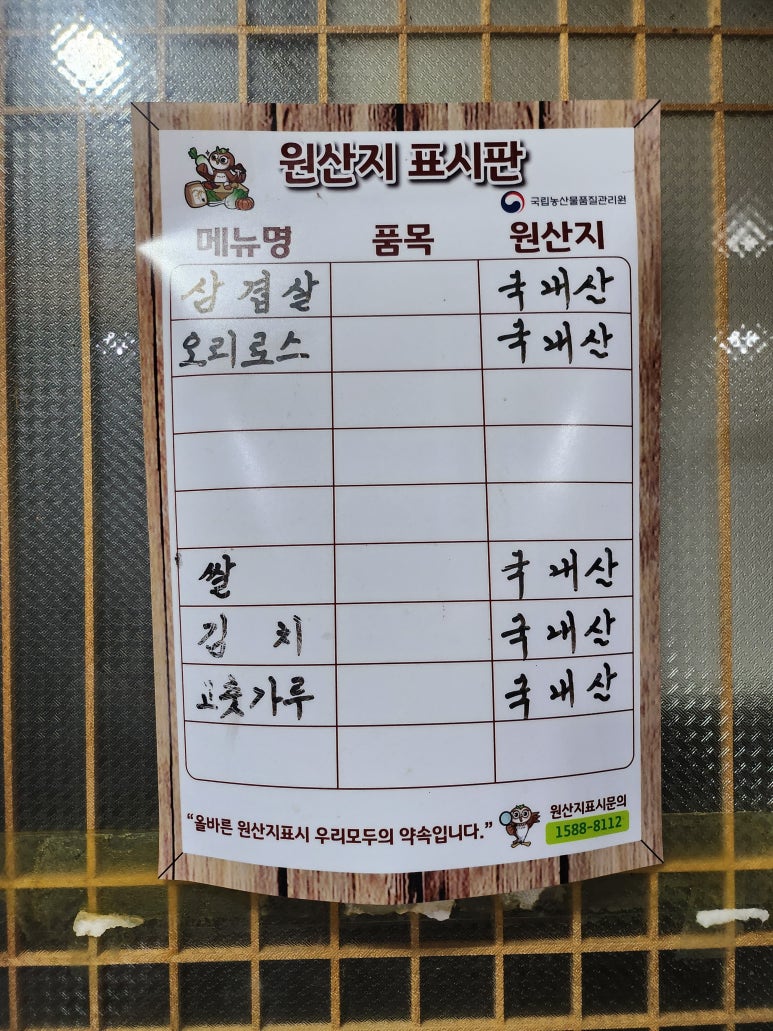 원산지 표시판
국립농산물품질관리원
메뉴명 품목 원산지
삼겹살 국내산
오리로스 국내산
쌀 국내산
김치 국내산
고춧가루 국내산
“올바른 원산지표시 우리모두의 약속입니다.”
원산지표시문의
1588-8112